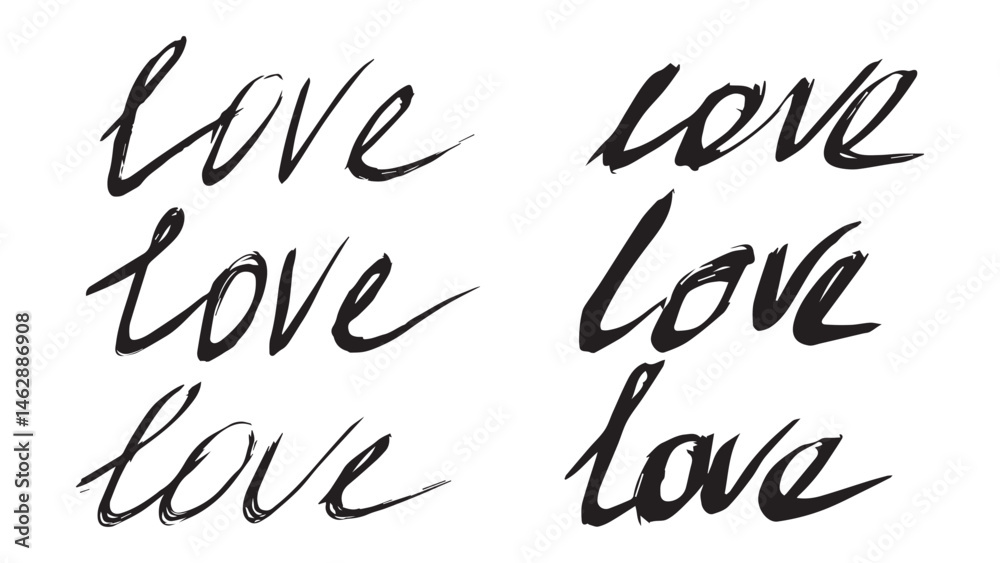 love love
love love
love love
Adobe Stock | #1462886908